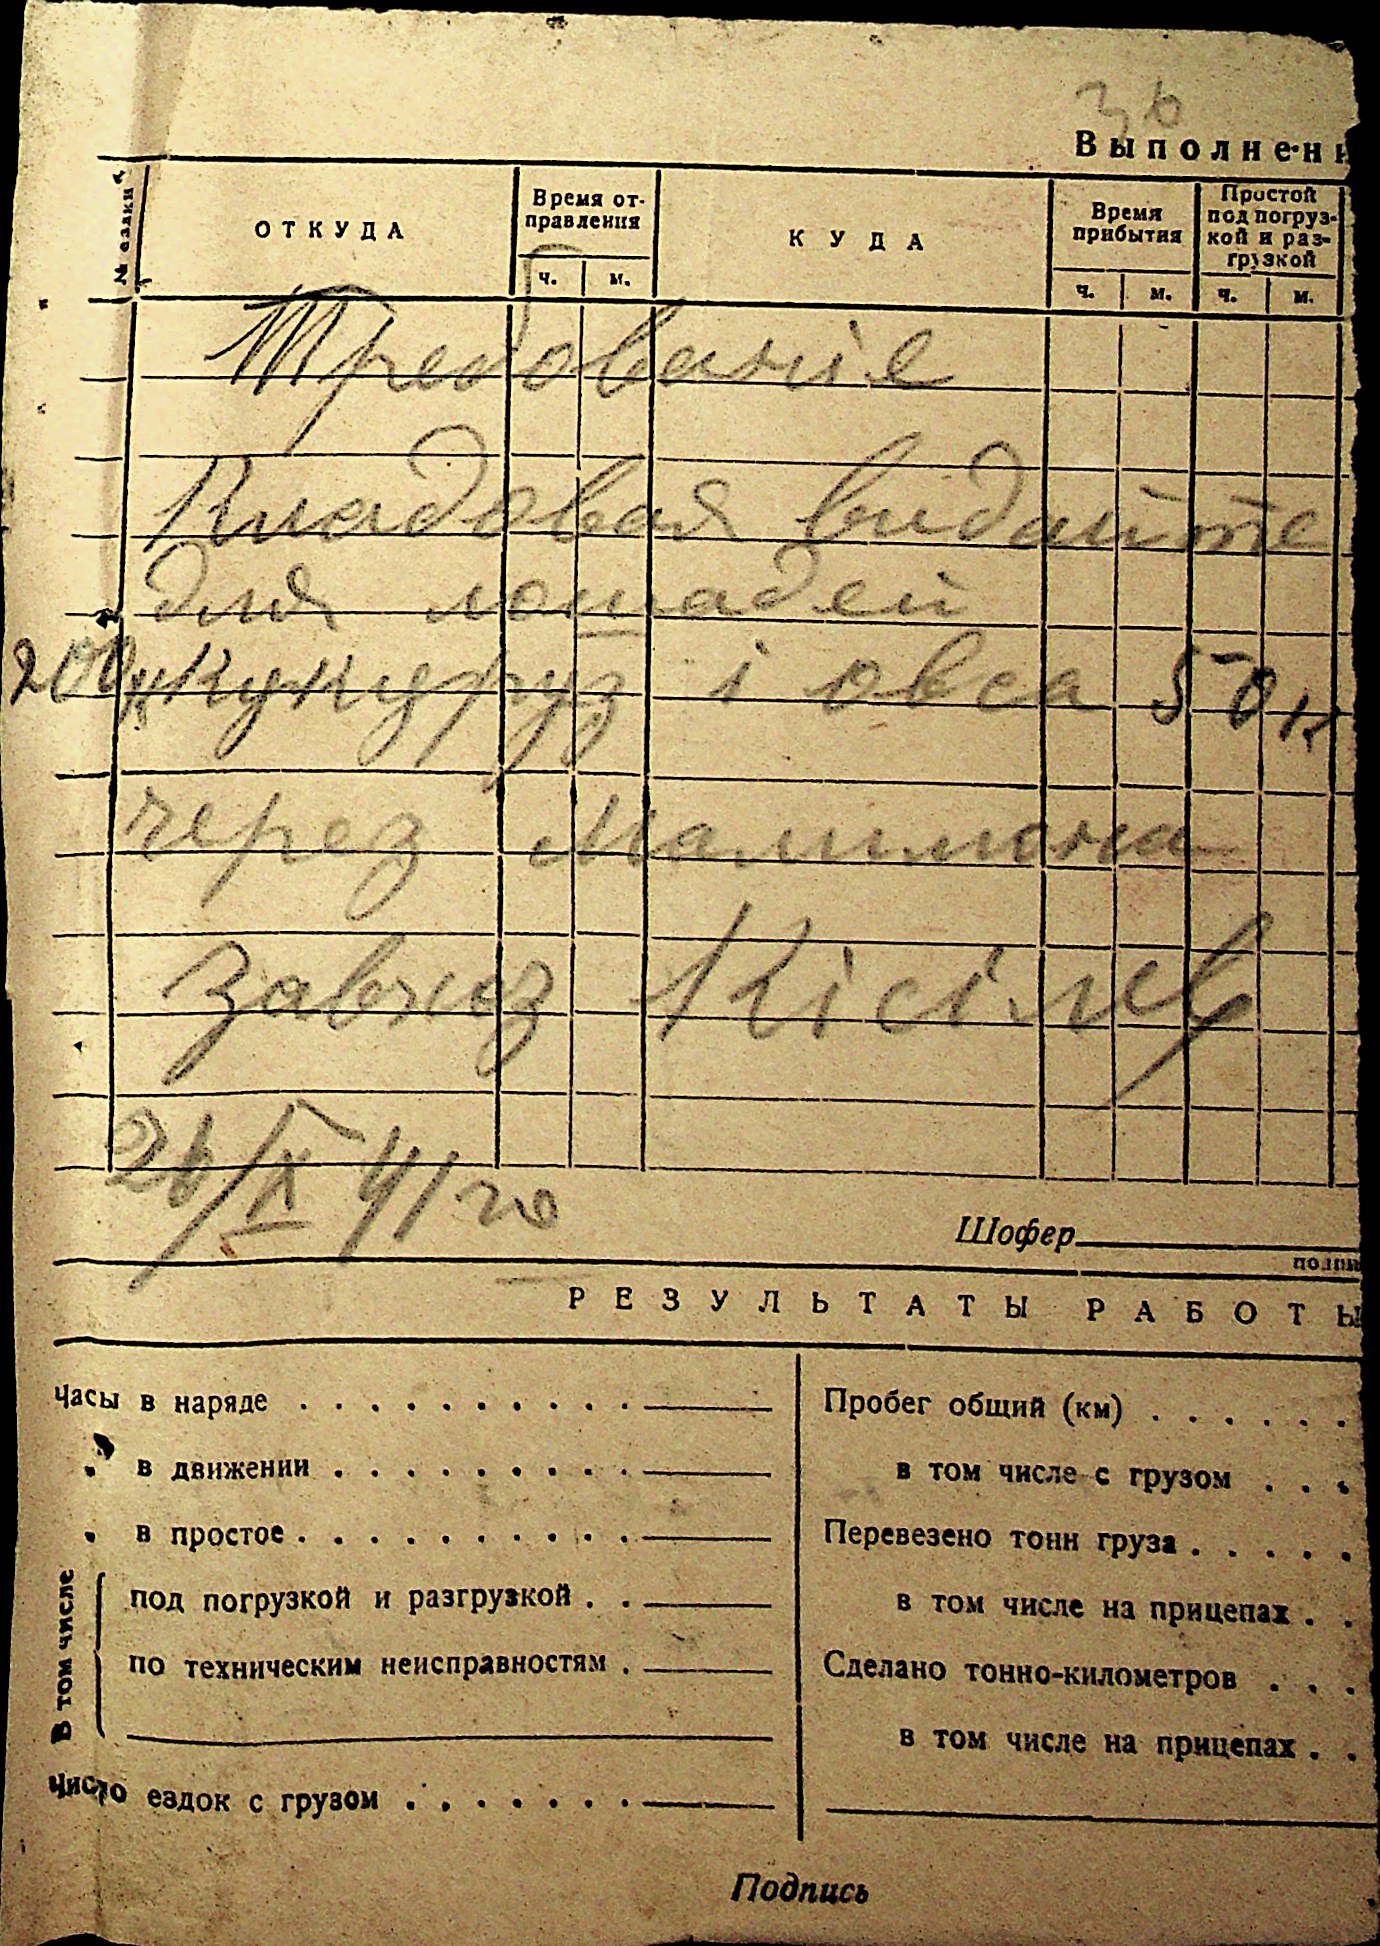 36
Выполнен
№ ездки
ОТКУДА
Время от-
правления
ч. м.
КУДА
Время
прибытия
ч. м.
Простой
под погруз-
кой и раз-
грузкой
ч. м.
Требованіе
Кладовая видайте
для лошадей
200 к кукуруз і овса 50 к
через
завхоз Кісілев
26/IX 41 го
Шофер
РЕЗУЛЬТАТЫ РАБОТЫ
Часы в наряде
" в движении
" в простое
В том числе
под погрузкой и разгрузкой
по техническим неисправностям
Число ездок с грузом
Пробег общий (км)
в том числе с грузом
Перевезено тонн груза
в том числе на прицепах
Сделано тонно-километров
в том числе на прицепах
Подпись